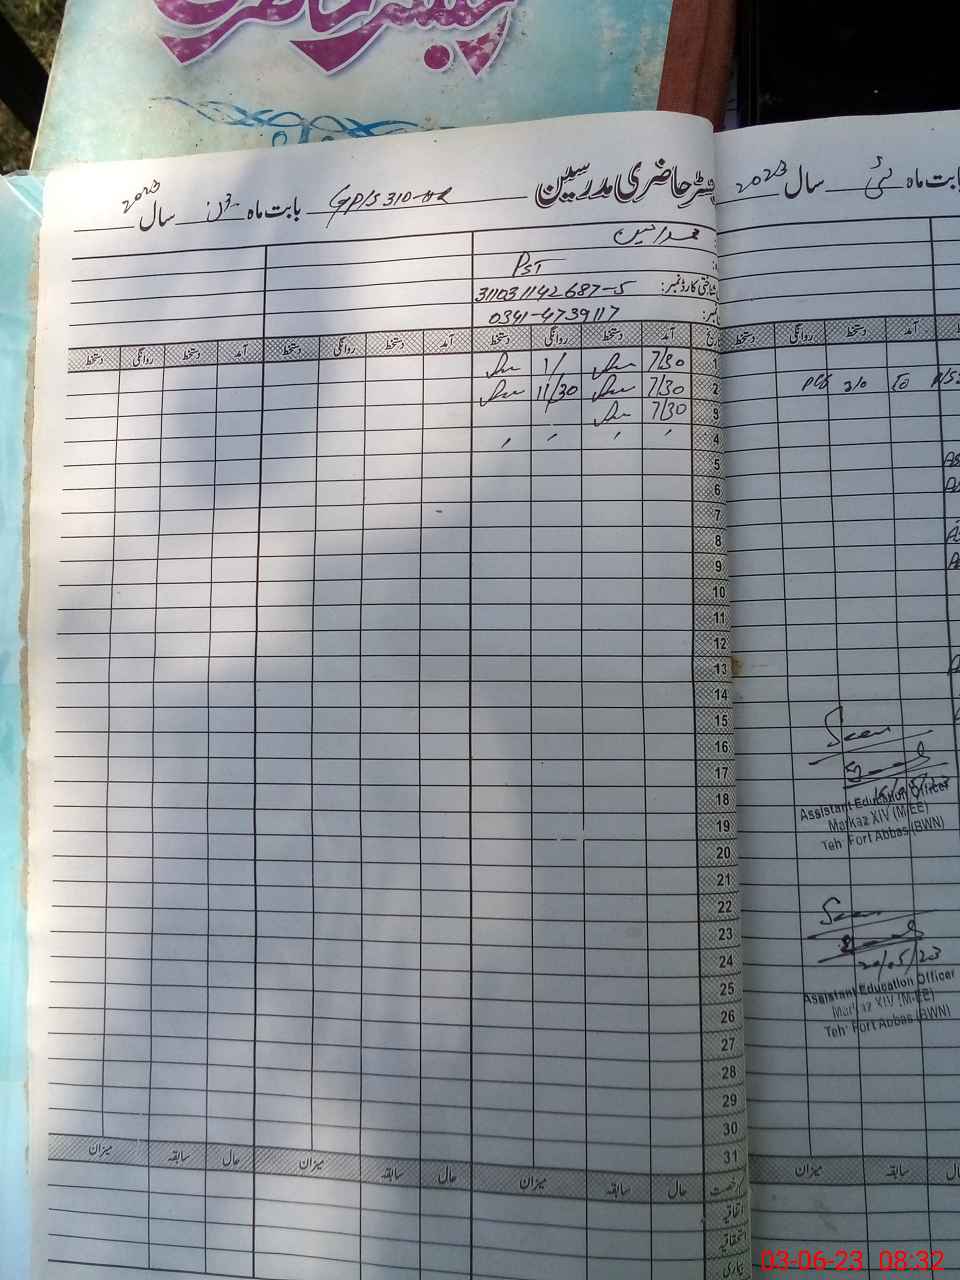 رجسٹر حاضری مدرسین GPS 310-HR بابت ماہ جون سال 2023
محمد امین
PST
شناختی کارڈ نمبر: 311031142687-5
0341-4739117
تاریخ آمد دستخط روانگی دستخط آمد دستخط روانگی دستخط آمد دستخط روانگی دستخط
7/30 1/
2 7/30 11/30
3 7/30
4
5
6
7
8
9
10
11
12
13
14
15
16
17
18
19
20
21
22
23
24
25
26
27
28
29
30
31
رخصت حال سابقہ میزان حال سابقہ میزان حال سابقہ میزان
اتفاقیہ
استحقاقیہ
بیماری
بابت ماہ مئی سال 2023
آمد دستخط روانگی دستخط
Seen
Assistant Education Officer
Markaz XIV (M-EE)
Teh: Fort Abbas (BWN)
Seen
20/05/23
Assistant Education Officer
Markaz XIV (M-EE)
Teh: Fort Abbas (BWN)
سابقہ میزان
03-06-23 08:32